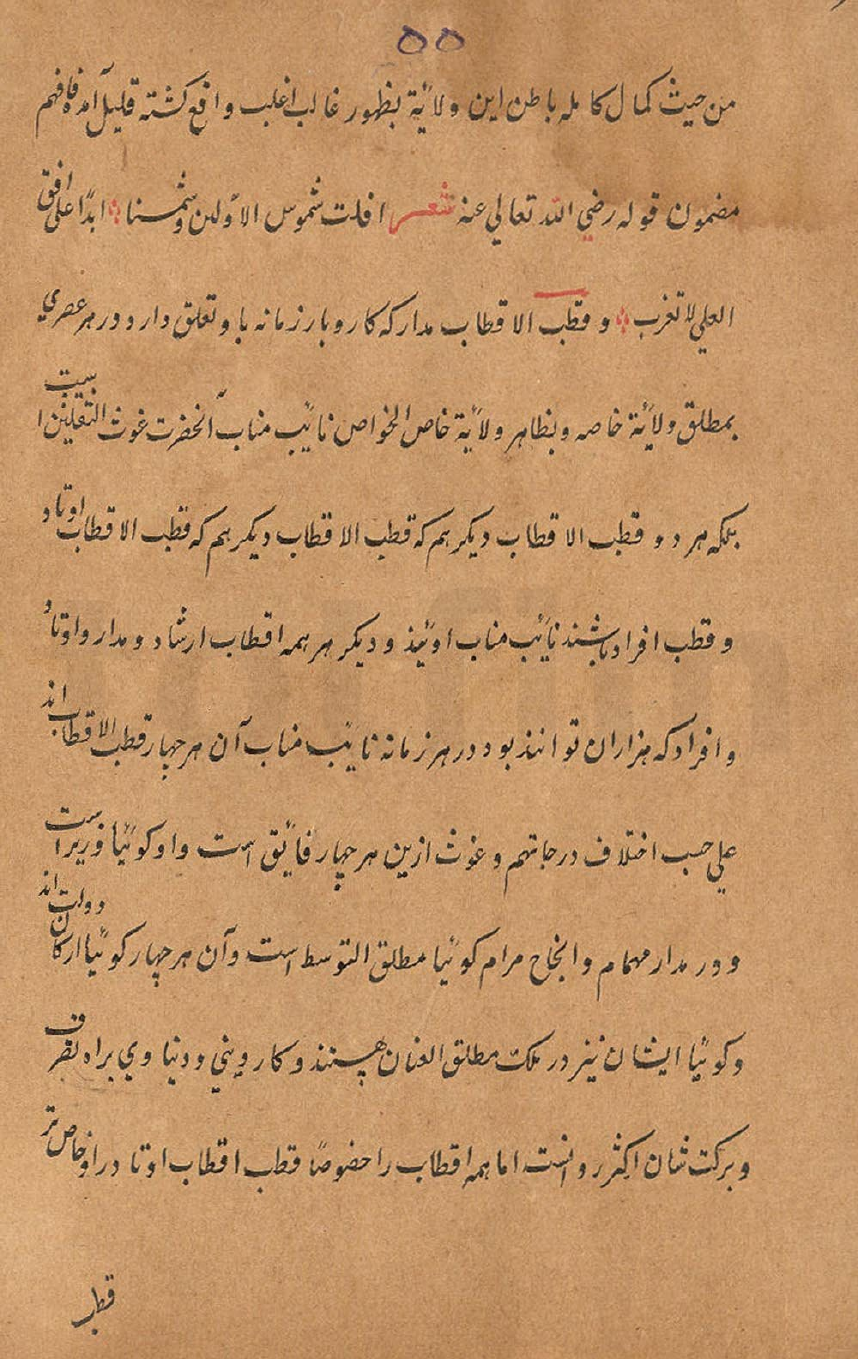 ۵۵
من حیث کمال کامله باطن این ولایة بظهور غالب اغلب واقع کشته قلیل آمده فافهم
مضمون قوله رضي الله تعالي عنه شعر افلت شموس الاولین وشمسنا ؞ ابدًا علی افق
العلي لا تغرب ؞ و قطب الاقطاب مدار که کاروبار زمانه باو تعلق دارد و در هر عصري
بمطلق ولایة خاصه و بظاهر ولایة خاص الخواص نایب مناب آنحضرت غوث الثقلین است
بلکه هر دو قطب الاقطاب دیکر هم که قطب الاقطاب دیکر هم که قطب الاقطاب اوتاد
و قطب افراد باشند نایب مناب اویند و دیکر هر همه اقطاب ارشاد و مدار و اوتاد
و افراد که هزاران توانند بود در هر زمانه نایب مناب آن هر چهار قطب الاقطاب اند
علي حسب اختلاف درجاتهم و غوث ازین هر چهار فایق است و او کوئیا وزیر است
و در مدار مهمام و انجاح مرام کوئیا مطلق التوسط است و آن هر چهار کوئیا ارکان دولت اند
و کوئیا ایشان نیز در ملک مطلق العنان هستند و کار دیني و دنیاوي براه تصرف
و برکت شان اکثر روانست اما همه اقطاب را خصوصًا قطب اقطاب اوتاد را و خاص تر
قطب